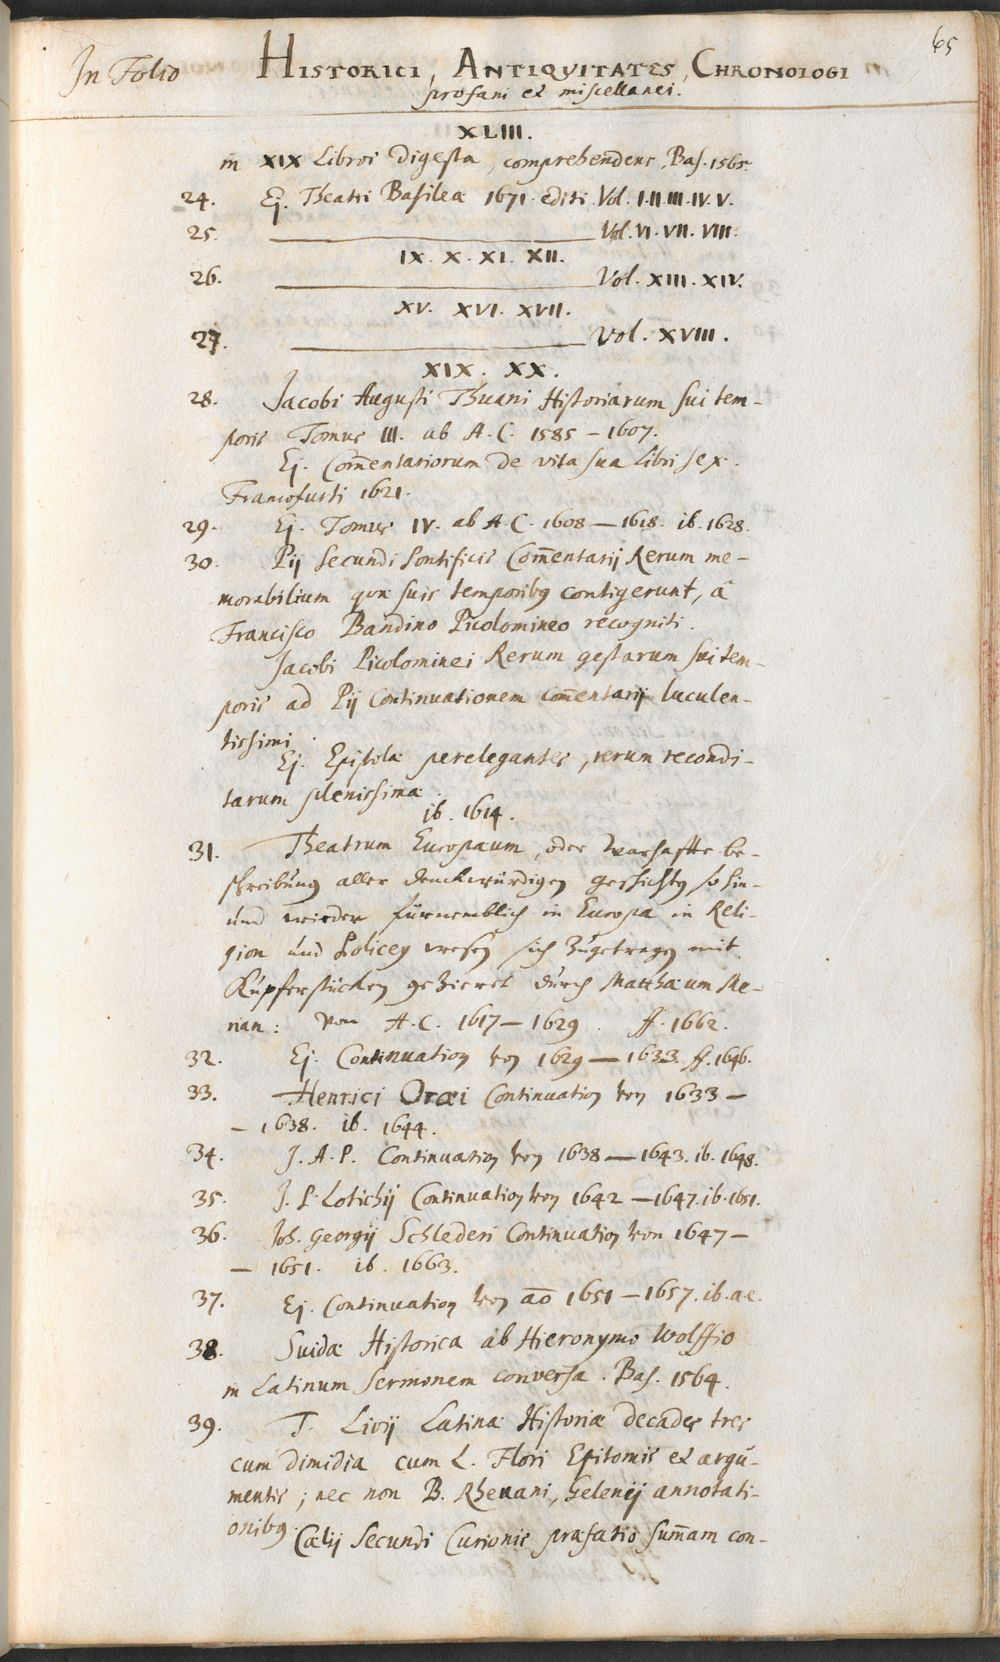 65
In Folio HISTORICI, ANTIQVITATES, CHRONOLOGI
profani et miscellanei.
XLIII.
in XIX Libros digesta, comprehendens, Bas. 1565.
24. Ej. Theatri Basileæ 1671. editi Vol. I. II. III. IV. V.
25. Vol. VI. VII. VIII.
IX. X. XI. XII.
26. Vol. XIII. XIV.
XV. XVI. XVII.
27. Vol. XVIII.
XIX. XX.
28. Jacobi Augusti Thuani Historiarum sui tem-
poris Tomus III. ab A. C. 1585 – 1607.
Ej. Com̄entariorum de vita sua Libri sex.
Francofurti 1621.
29. Ej. Tomus IV. ab A. C. 1608 — 1618. ib. 1628.
30. Pij Secundi Pontificis Com̄entarij Rerum me-
morabilium quæ suis temporibꝰ contigerunt, â
Francisco Bandino Picolomineo recogniti.
Jacobi Picolominei Rerum gestarum sui tem-
poris ad Pij Continuationem com̄entarij luculen-
tissimi.
Ej. Epistolæ perelegantes, rerum recondi-
tarum plenissimæ.
ib. 1614.
31. Theatrum Europæum, oder Warhaffte be-
schreibung aller denckwürdigen geschichten so hin-
und wieder fürnemblich in Europa in Reli-
gion und Policey wesen sich zugetragen mit
Kupferstücken gezieret durch Matthæum Me-
rian: Vom A. C. 1617 — 1629. ff. 1662.
32. Ej. Continuation von 1629 — 1633. ff. 1646.
33. Henrici Oræi Continuation von 1633 —
— 1638. ib. 1644.
34. J. A. P. Continuation von 1638 — 1643. ib. 1648.
35. J. P. Lotichij Continuation von 1642 — 1647. ib. 1651.
36. Joh. Georgij Schlederi Continuation von 1647 —
— 1651. ib. 1663.
37. Ej. Continuation von aō 1651 — 1657. ib. ae.
38. Suidæ Historica ab Hieronymo Wolffio
in Latinum Sermonem conversa. Bas. 1564.
39. T. Livij Latinæ Historiæ decades tres
cum dimidia cum L. Flori Epitomis et argu-
mentis; nec non B. Rhenani, Gelenij annotati-
onibꝰ.
Cælij Secundi Curionis præfatio sum̄am con-